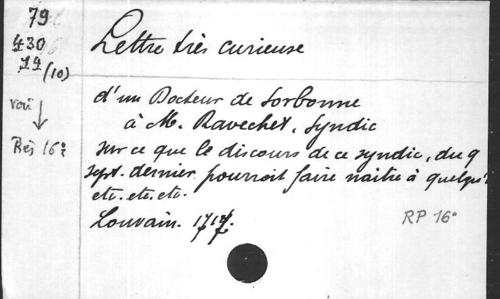 79
430
14
(10)
voir
Rés 16º
Lettre très curieuse
d'un Docteur de Sorbonne
à M. Ravechet, Syndic
sur ce que le discours de ce syndic, du 9
sept. dernier pourroit faire naître à quelqu'
etc. etc. etc.
Louvain. 1717.
RP 16º